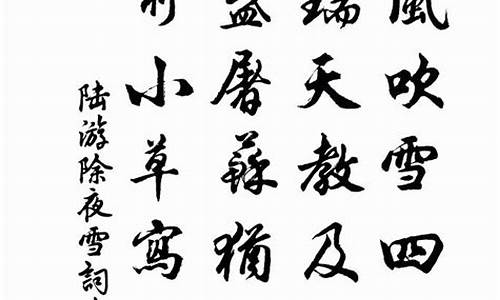 風吹雪四
瑞天教及
盞屠蘇猶
前小草寫
陸游除夜雪詞